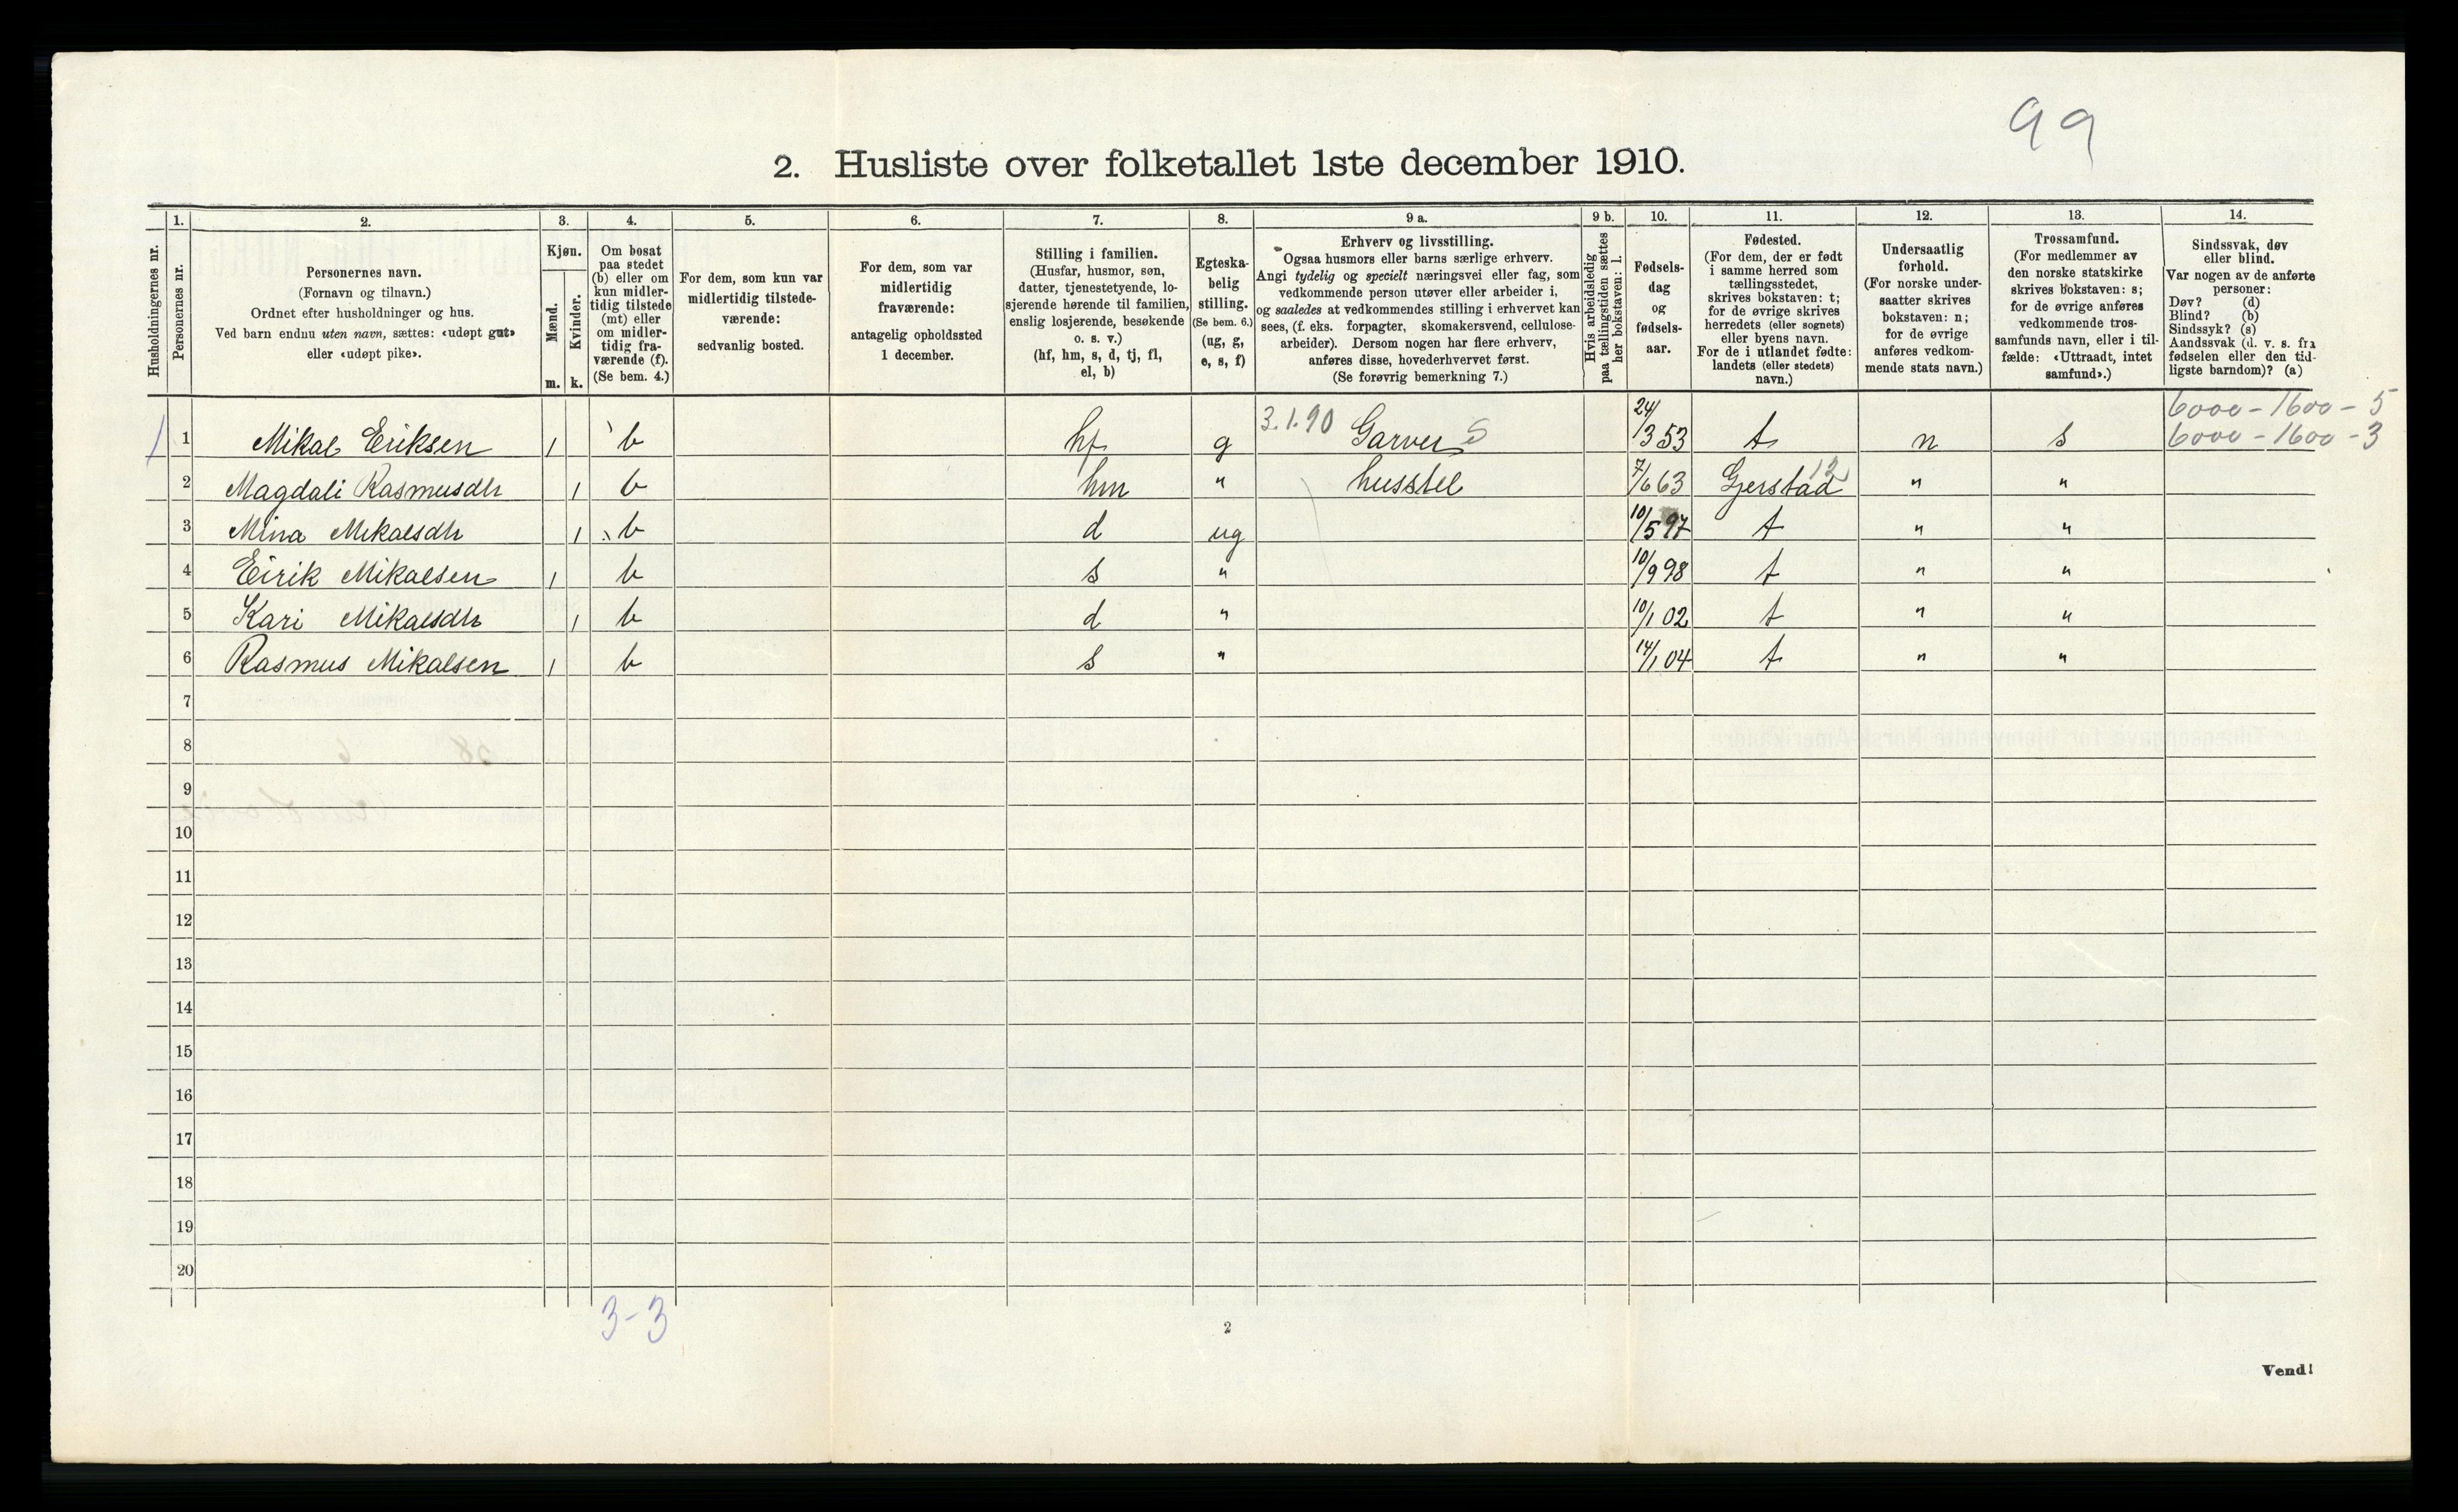 99
2. Husliste over folketallet 1ste december 1910.
Husholdningernes nr.
1.
Personernes nr.
2.
Personernes navn.
(Fornavn og tilnavn.)
Ordnet efter husholdninger og hus.
Ved barn endnu uten navn, sættes: «udøpt gut»
eller «udøpt pike».
3.
Kjøn.
Mænd.
Kvinder.
m.
k.
4.
Om bosat
paa stedet
(b) eller om
kun midler-
tidig tilstede
(mt) eller
om midler-
tidig fra-
værende (f).
(Se bem. 4.)
5.
For dem, som kun var
midlertidig tilstede-
værende:
sedvanlig bosted.
6.
For dem, som var
midlertidig
fraværende:
antagelig opholdssted
1 december.
7.
Stilling i familien.
(Husfar, husmor, søn,
datter, tjenestetyende, lo-
sjerende hørende til familien,
enslig losjerende, besøkende
o. s. v.)
(hf, hm, s, d, tj, fl,
el, b)
8.
Egteska-
belig
stilling.
(Se bem. 6.)
(ug, g,
e, s, f)
9 a.
Erhverv og livsstilling.
Ogsaa husmors eller barns særlige erhverv.
Angi tydelig og specielt næringsvei eller fag, som
vedkommende person utøver eller arbeider i,
og saaledes at vedkommendes stilling i erhvervet kan
sees, (f. eks. forpagter, skomakersvend, cellulose-
arbeider). Dersom nogen har flere erhverv,
anføres disse, hovederhvervet først.
(Se forøvrig bemerkning 7.)
9 b.
Hvis arbeidsledig
paa tællingstiden sættes
her bokstaven: l.
10.
Fødsels-
dag
og
fødsels-
aar.
11.
Fødested.
(For dem, der er født
i samme herred som
tællingsstedet,
skrives bokstaven: t;
for de øvrige skrives
herredets (eller sognets)
eller byens navn.
For de i utlandet fødte:
landets (eller stedets)
navn.)
12.
Undersaatlig
forhold.
(For norske under-
saatter skrives
bokstaven: n;
for de øvrige
anføres vedkom-
mende stats navn.)
13.
Trossamfund.
(For medlemmer av
den norske statskirke
skrives bokstaven: s;
for de øvrige anføres
vedkommende tros-
samfunds navn, eller i til-
fælde: «Uttraadt, intet
samfund».)
14.
Sindssvak, døv
eller blind.
Var nogen av de anførte
personer:
Døv? (d)
Blind? (b)
Sindssyk? (s)
Aandssvak (d. v. s. fra
fødselen eller den tid-
ligste barndom)? (a)
6000 - 1600 - 5
1 1 Mikal Eriksen 1 b hf g 3.1.90 Garver S 24/3 53 t n s 6000 - 1600 - 3
2 Magdali Rasmusdtr 1 b hm " husstel 7/6 63 Gjerstad 12 " "
3 Mina Mikalsdtr 1 b d ug 10/5 97 t " "
4 Eirik Mikalsen 1 b s " 10/9 98 t " "
5 Kari Mikalsdtr 1 b d " 10/1 02 t " "
6 Rasmus Mikalsen 1 b s " 14/1 04 t " "
7
8
9
10
11
12
13
14
15
16
17
18
19
20
3-3
2
Vend!